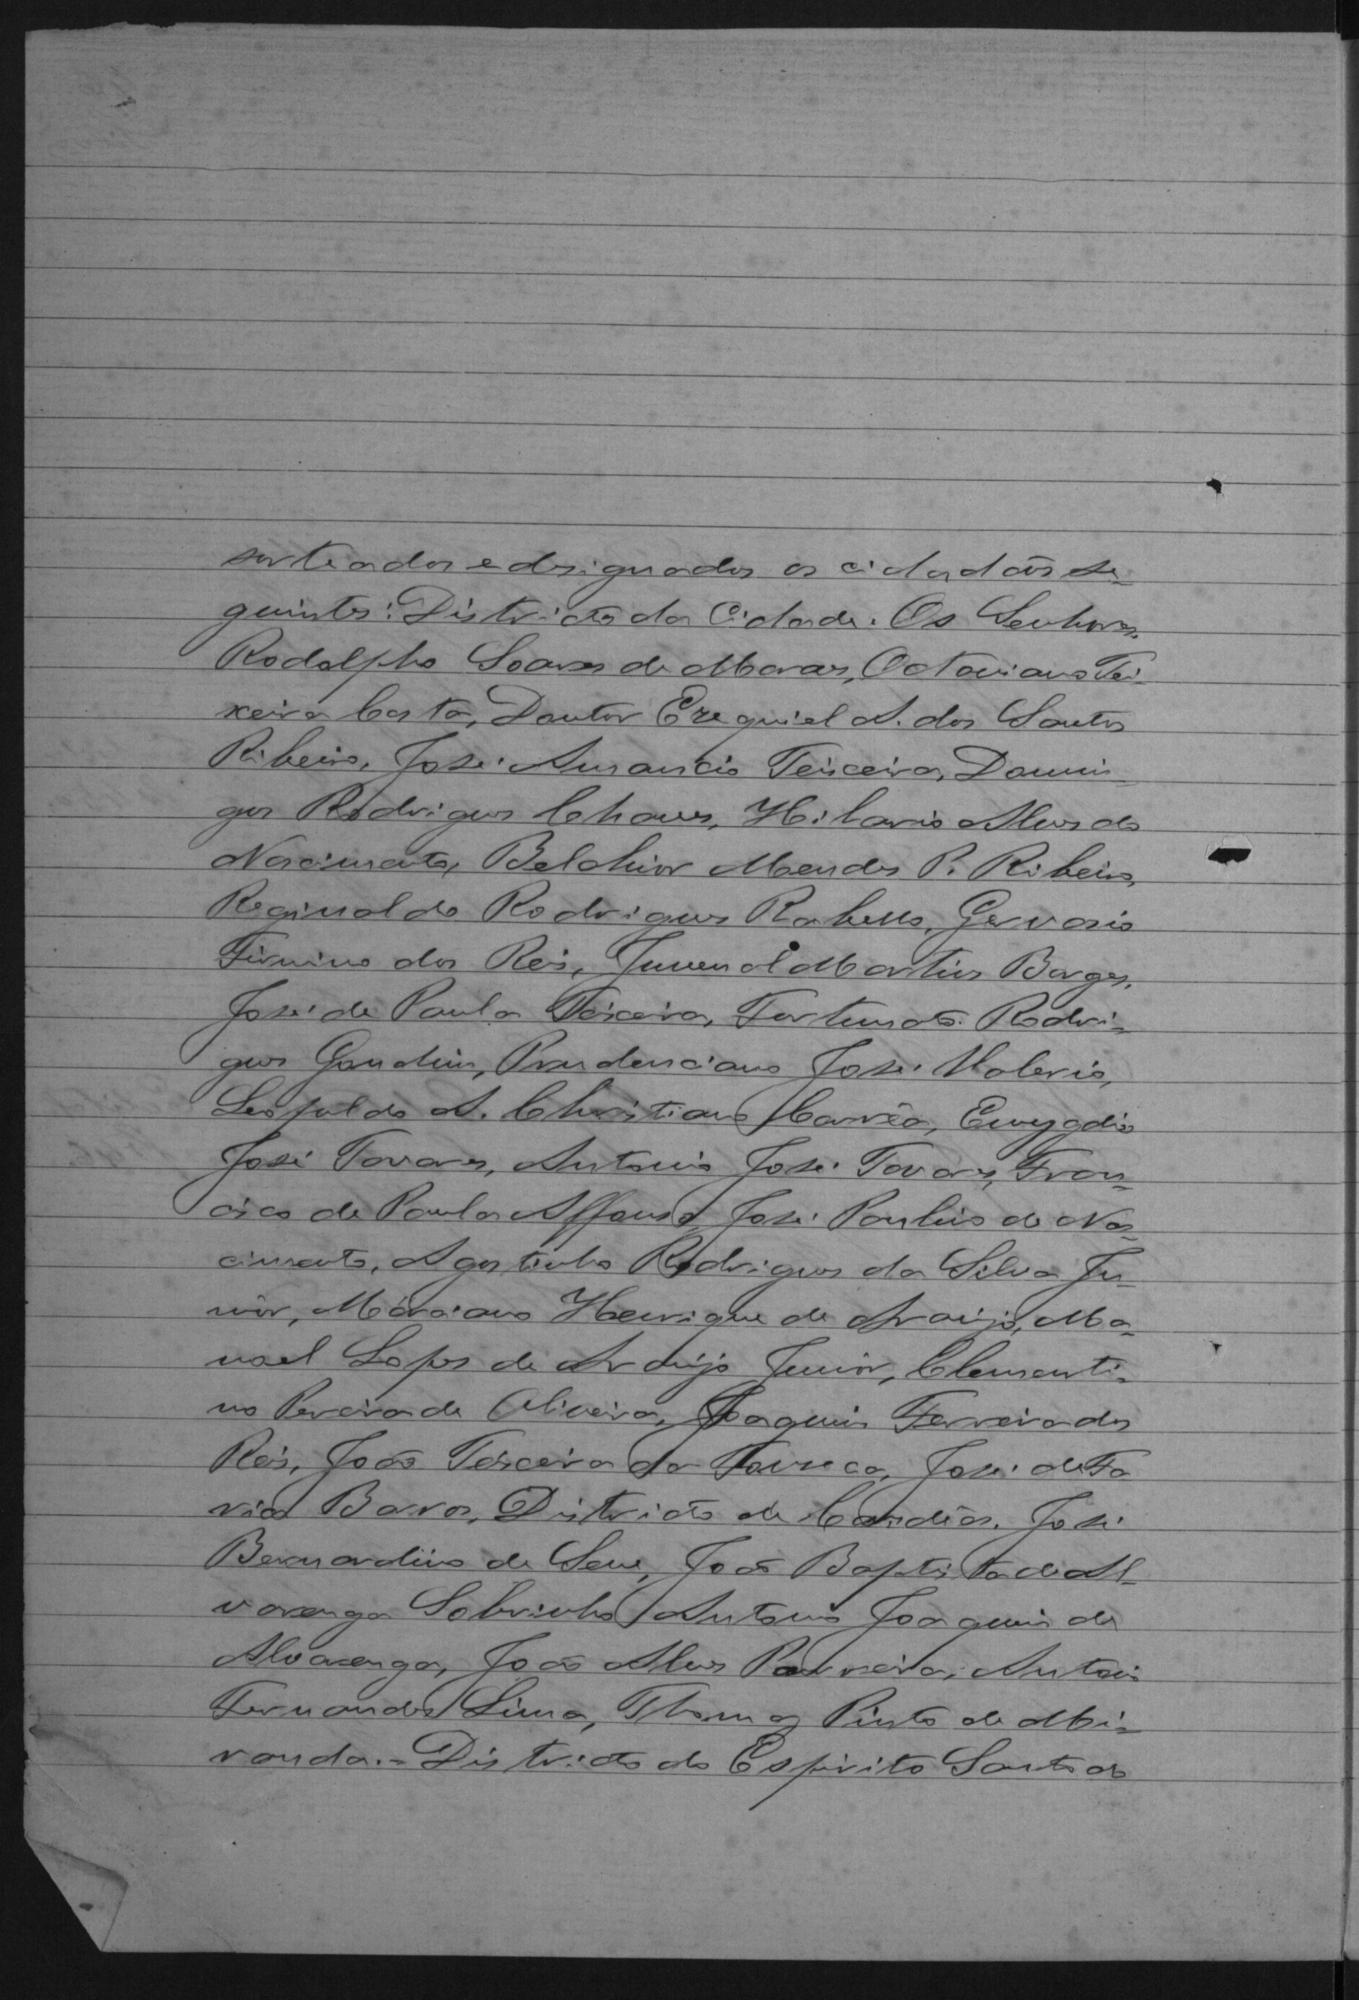 sorteados e designados os cidadãos se-
guintes: Districto da Cidade. Os Senhores,
Rodolpho Soares de Moraes, Octaviano Tei-
xeira Costa, Doutor Ezequiel A. dos Santos
Ribeiro, José Amancio Teixeira, Domin-
gos Rodrigues Chaves, Hilario Alves do
Nascimento, Belchior Mendes P. Ribeiro,
Reginaldo Rodrigues Rabello, Gervasio
Firmino dos Reis, Juvenal Martins Borges,
José de Paula Teixeira, Fortunato Rodri-
gues Gondim, Prudenciano José Valerio,
Leopoldo A. Christiano Corrêa, Emygdio
José Tavares, Antonio José Tavares, Fran-
cisco de Paula Affonso, José Paulino do Nas-
cimento, Agostinho Rodrigues da Silva Ju-
nior, Marciano Henrique de Araujo, Ma-
noel Lopes de Araujo Junior, Clementi-
no Pereira de Oliveira, Joaquim Ferreira dos
Reis, João Teixeira da Fonseca, José de Fa
ria Barros, Districto de Candêas. José
Bernardino de Sene, João Baptista de Al-
varenga Sobrinho, Antonio Joaquim de
Alvarenga, João Alves Parreira, Antonio
Fernandes Lima, Thomaz Pinto de Mi-
randa.- Districto do Espirito Santo do